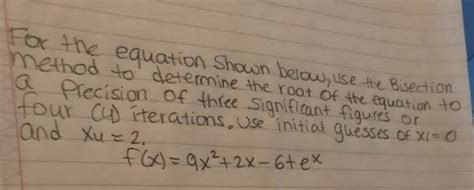 For the equation shown below, use the Bisection
method to determine the root of the equation to
a Precision of three significant figures or
four (4) iterations. Use initial guesses of xi=0
and xu = 2.
f(x) = 9x²+2x-6+eˣ